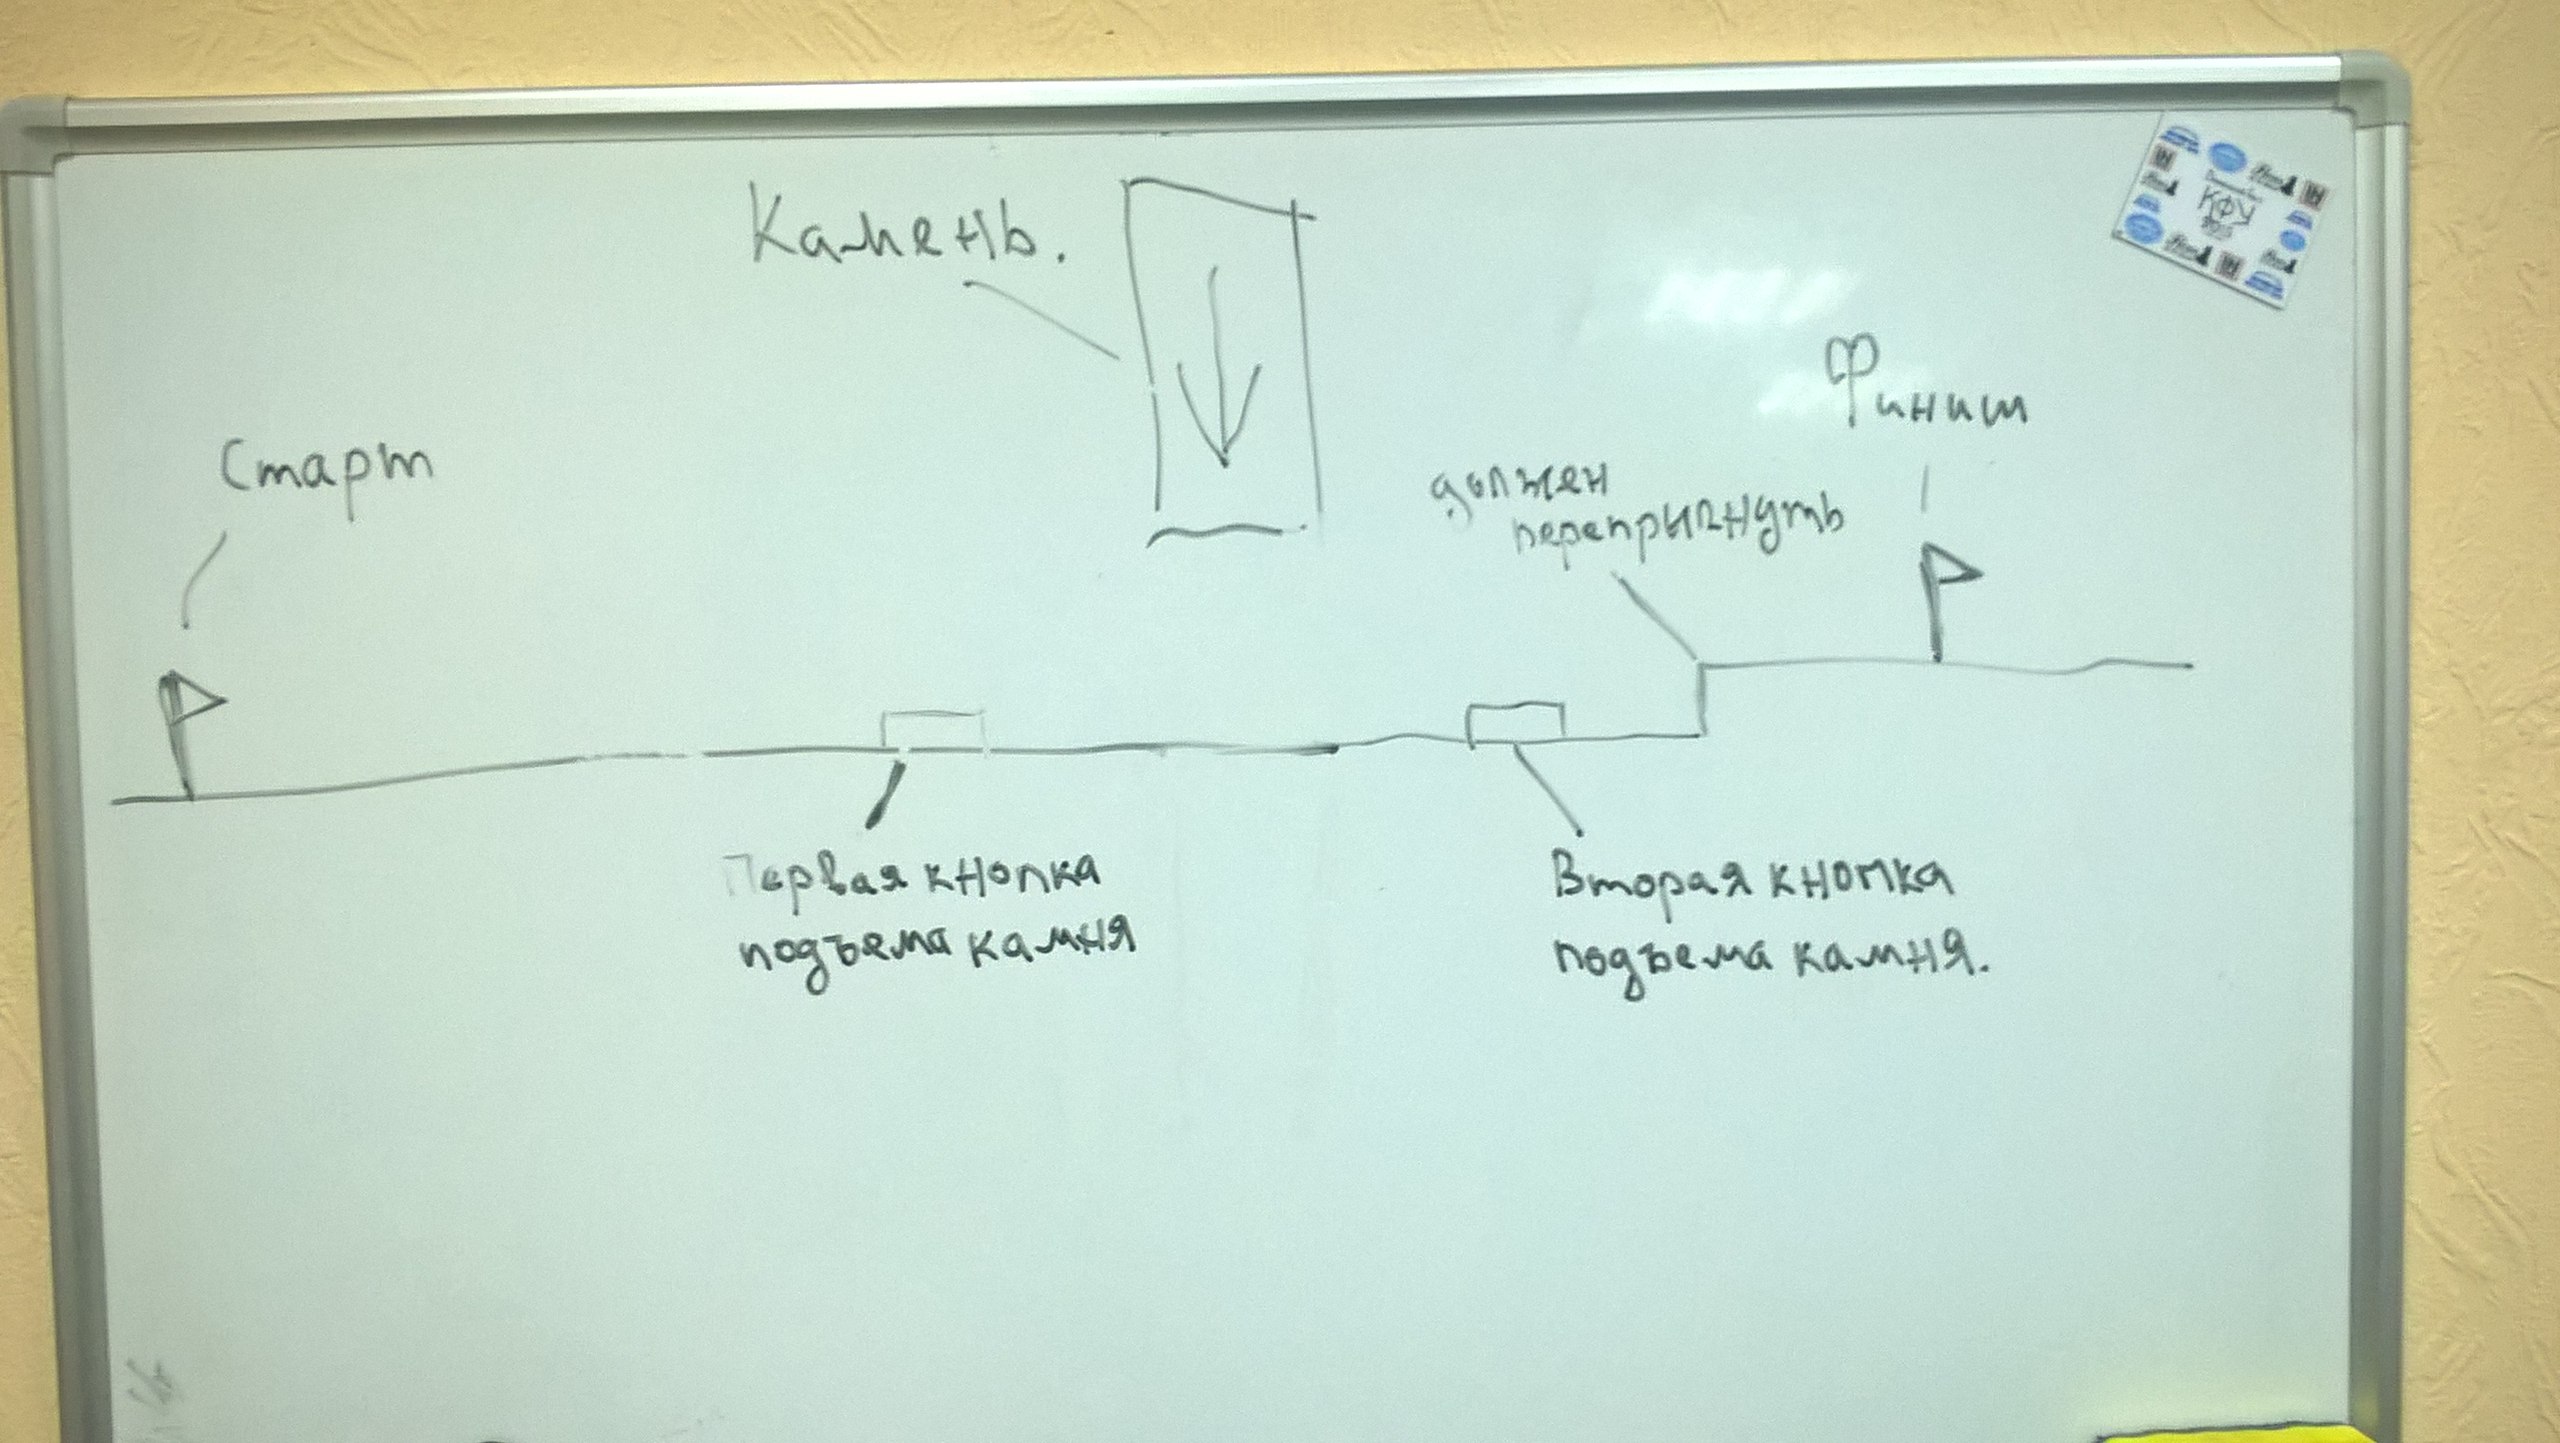 Камень.
Финиш
Старт
должен
перепрыгнуть
Первая кнопка
подъема камня
Вторая кнопка
подъема камня.
КФУ